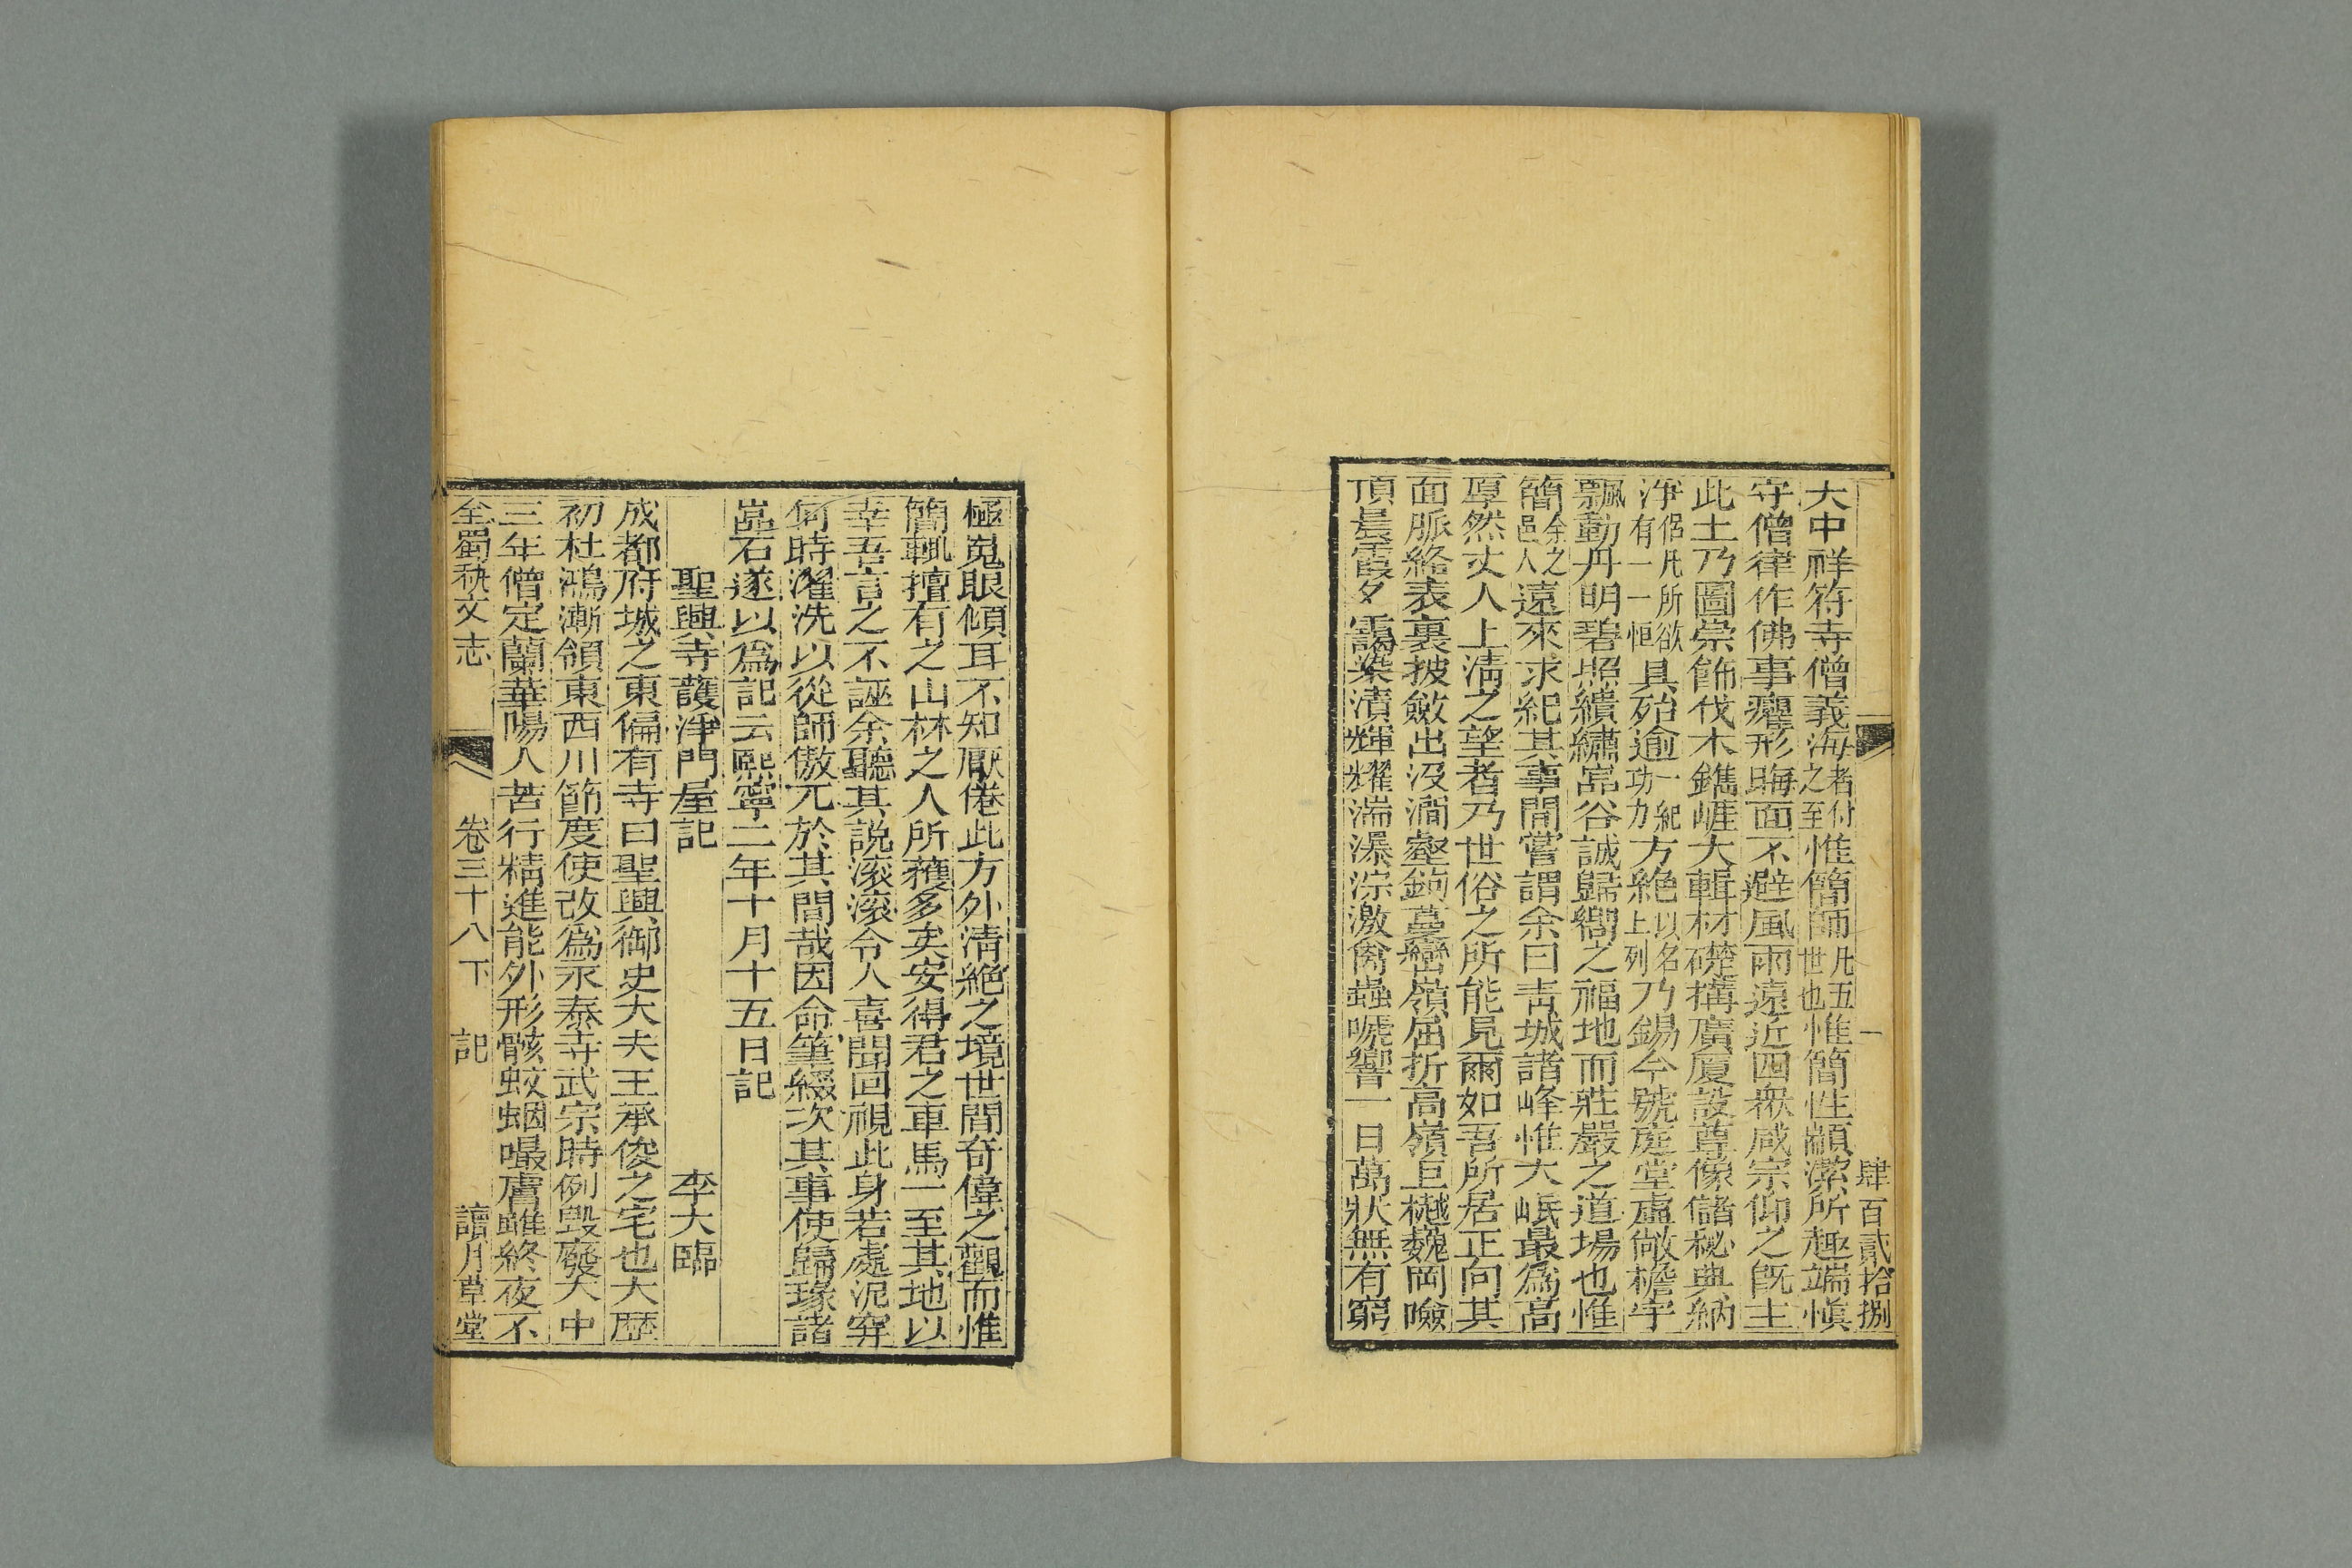 肆百貳拾捌
大中祥符寺僧義海者付之至惟簡師凡五世也惟簡性顓潔所趣端慎
守僧律作佛事癯形晦面不避風雨遠近四衆咸宗仰之旣主
此土乃圖崇飾伐木鐫崕大輯材礎搆廣厦設尊像儲秘典納
淨侶凡所欲有一一恒具殆逾一紀功力方絶以名上列乃錫今號庭堂虛敞檐宇
飄動丹明碧照繢繡嵓谷誠歸嚮之福地而莊嚴之道場也惟
簡余之邑人遠來求紀其事間嘗謂余曰靑城諸峰惟大岷最爲高
厚然丈人上淸之望者乃世俗之所能見爾如吾所居正向其
面脈絡表裏披斂出沒澗壑鉤蔓巒嶺屈折高嶺巨樾巍岡嶮
頂晨霞夕靄染漬輝耀湍瀑淙激禽蟲嘑響一日萬狀無有窮
極寬眼傾耳不知厭倦此方外淸絶之境世間奇偉之觀而惟
簡輒擅有之山林之人所穫多矣安得君之車馬一至其地以
幸吾言之不誣余聽其說滚滚令人喜聞回視此身若處泥穽
何時濯洗以從師傲兀於其間哉因命筆綴次其事使歸琢諸
嵓石遂以爲記云熙寧二年十月十五日記
聖興寺護淨門屋記 李大臨
成都府城之東偏有寺曰聖興御史大夫王承俊之宅也大歷
初杜鴻漸領東西川節度使改爲永泰寺武宗時例毀廢大中
三年僧定蘭華陽人苦行精進能外形骸蚊蚋嘬膚雖終夜不
全蜀秇文志 卷三十八下 記 讀月草堂